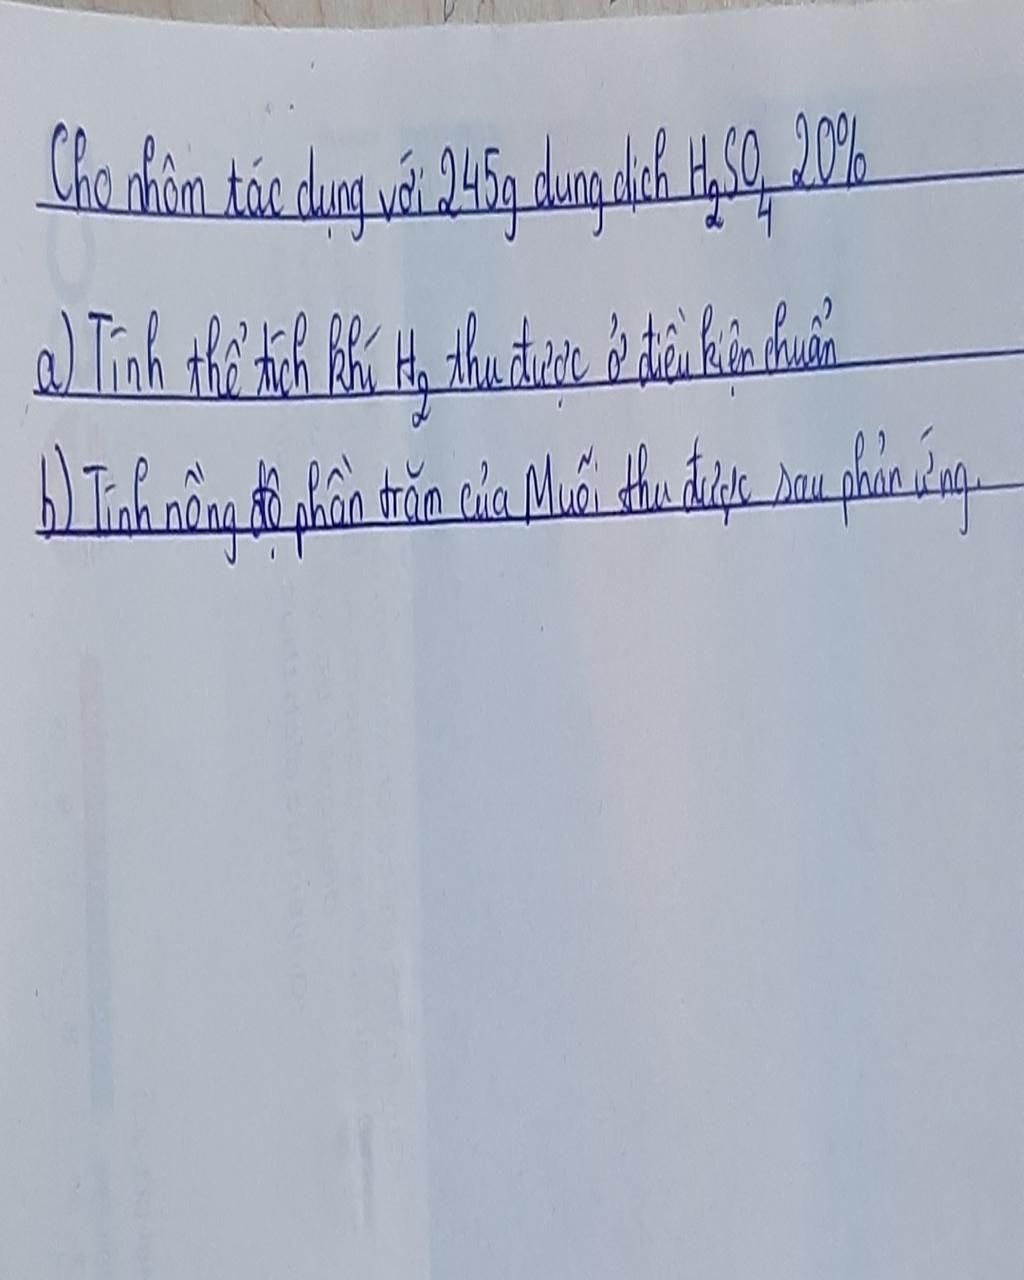 Cho nhôm tác dụng với 245g dung dịch H₂SO₄ 20%
a) Tính thể tích khí H₂ thu được ở điều kiện chuẩn
b) Tính nồng độ phần trăm của Muối thu được sau phản ứng.